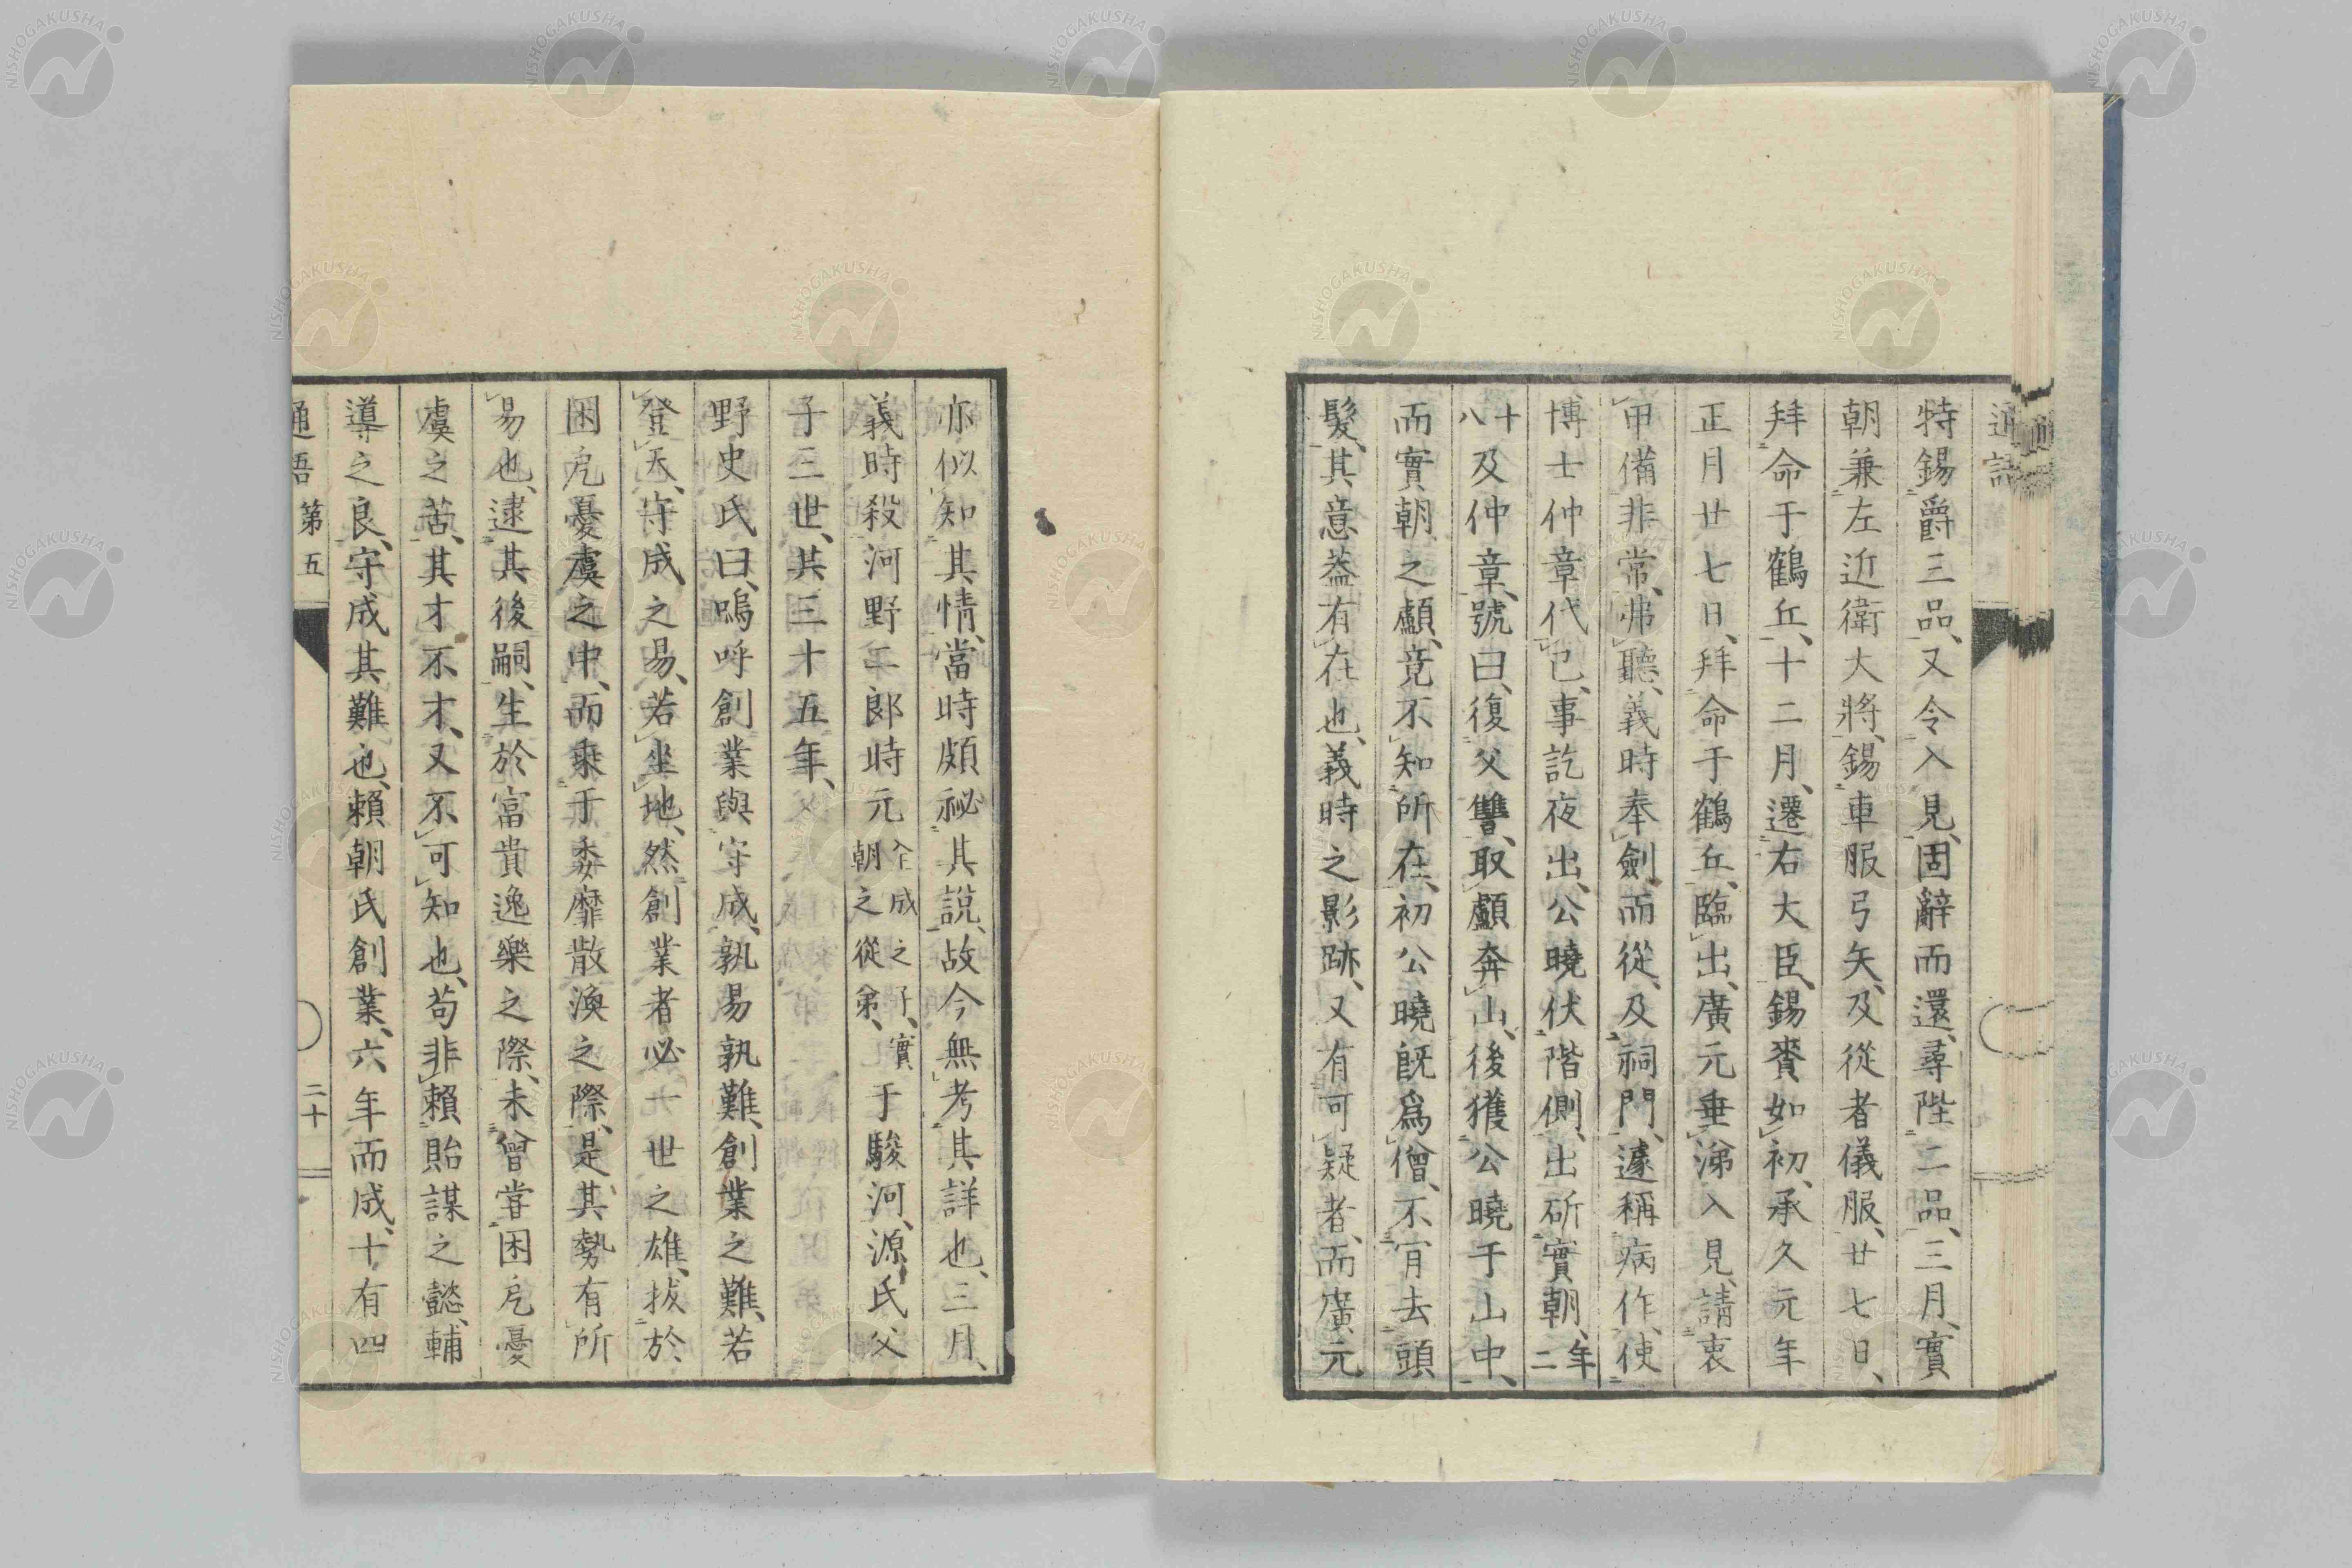 特錫爵三品、又令入見、固辭而還、尋陛二品、三月、實
朝兼左近衛大將、錫車服弓矢、及從者儀服、廿七日、
拜命于鶴丘、十二月、遷右大臣、錫賚如初、承久元年
正月廿七日、拜命于鶴丘、臨出、廣元垂涕入見、請衷
甲備非常、弗聽、義時奉劍而從、及祠門、遽稱病作、使
博士仲章代己、事訖夜出、公曉伏階側、出斫實朝、年二
十八及仲章、號曰、復父讐、取顱奔山、後獲公曉于山中、
而實朝之顱、竟不知所在、初公曉既爲僧、不肎去頭
髮、其意葢有在也、義時之影跡、又有可疑者、而廣元
亦似知其情、當時頗祕其說、故今無考其詳也、三月、
義時殺河野二郎時元全成之子、實朝之從弟、于駿河、源氏父
子三世、其三十五年、
野史氏曰、嗚呼創業與守成、孰易孰難、創業之難、若
登天、守成之易、若坐地、然創業者必一世之雄、拔於
困戹憂虞之中、而乘于委靡散渙之際、是其勢有所
易也、逮其後嗣、生於富貴逸樂之際、未曾甞困戹憂
虞之苦、其才不才、又不可知也、苟非賴貽謀之懿、輔
導之良、守成其難也、賴朝氏創業、六年而成、十有四
通語 第五 二十
NISHOGAKUSHA